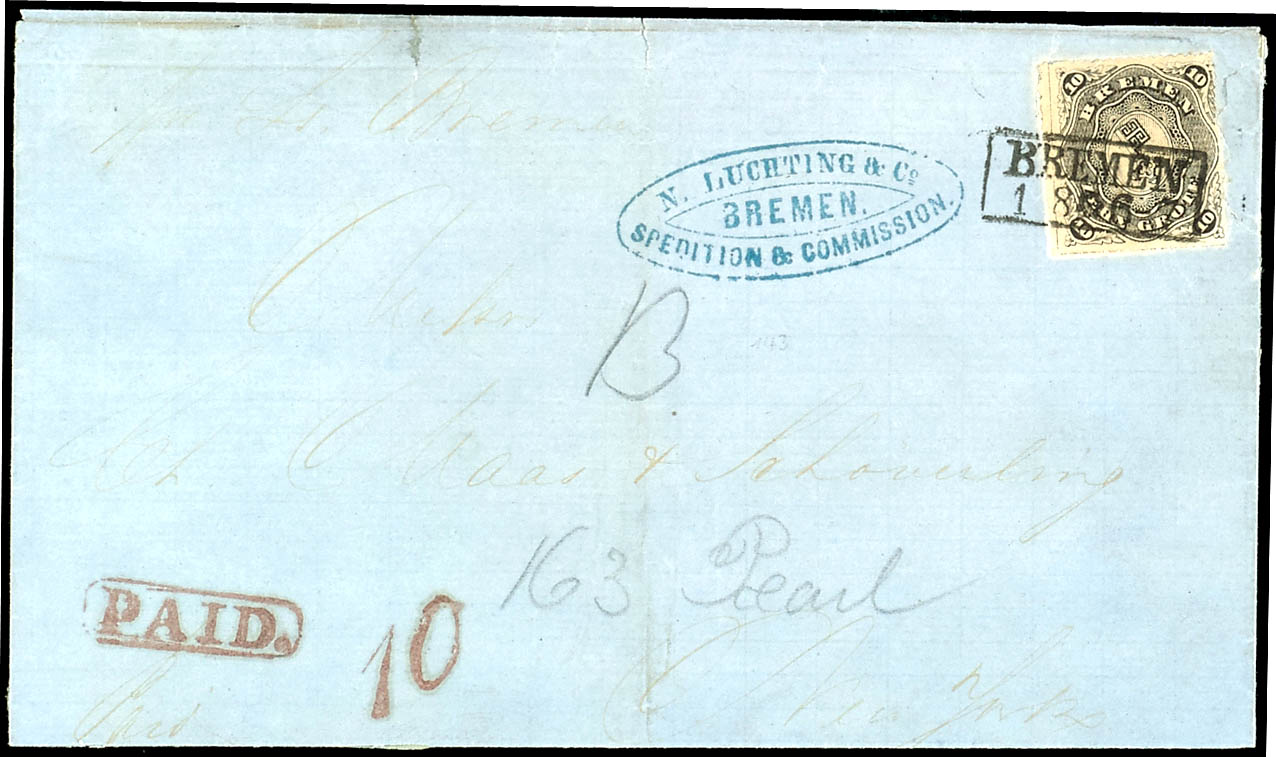 10 10
BREMEN
ZEHN GROTE
10 10
BREMEN
1 8 6
N. LUCHTING & Co
BREMEN.
SPEDITION & COMMISSION.
Bremen
B
143
Haas & Schoverling
163 Pearl
PAID.
10
Paid
New York